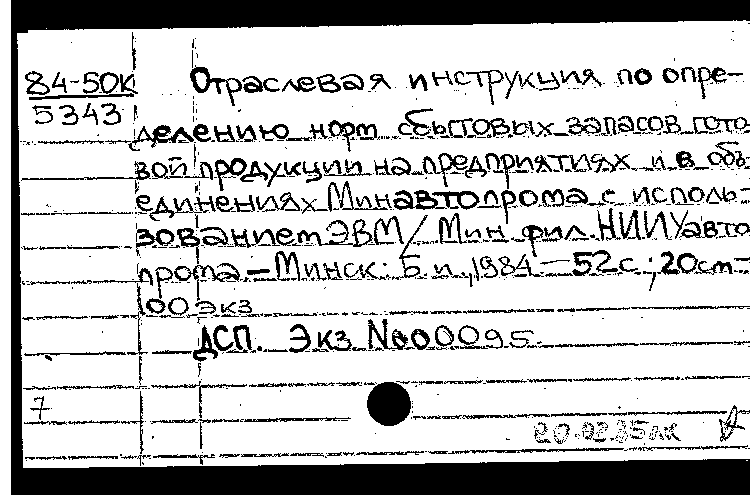 84-50К
5343
Отраслевая инструкция по опре-
делению норм сбытовых запасов гото
вой продукции на предприятиях и в объ
единениях Минавтопрома с исполь-
зованием ЭВМ/ Мин. фил. НИИУавто
прома.—Минск: Б.и.,1984.—52с.;20см-
100 экз
ДСП. Экз №00095.
7
20.02.85